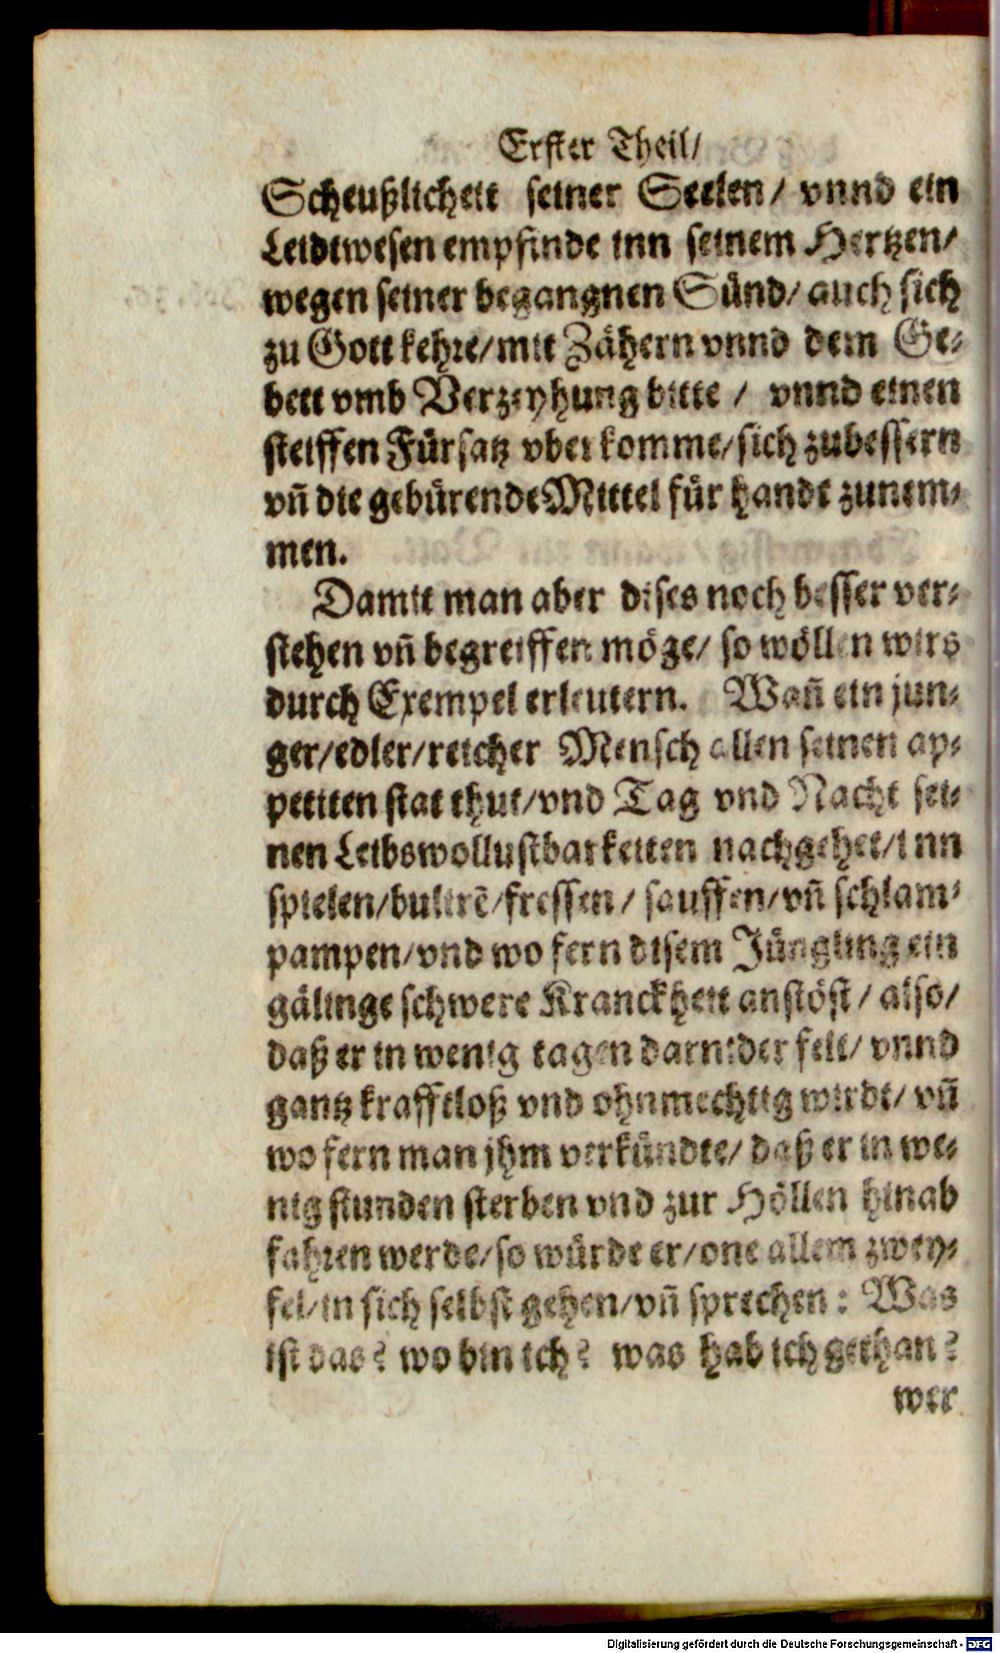 Erster Theil/
Scheußlicheit seiner Seelen/ vnnd ein
Leidtwesen empfinde inn seinem Hertzen/
wegen seiner begangnen Sünd/ auch sich
zu Gott kehre/ mit Zähern vnnd dem Ge-
bett vmb Verzeyhung bitte / vnnd einen
steiffen Fürsatz vberkomme/ sich zubessern
vñ die gebürende Mittel für handt zunem-
men.
Damit man aber dises noch besser ver-
stehen vñ begreiffen möge/ so wöllen wirs
durch Exempel erleutern. Wañ ein jun-
ger/ edler/ reicher Mensch allen seinen ap-
petiten stat thut/ vnd Tag vnd Nacht sei-
nen Leibswollustbarkeiten nachgehet/ inn
spielen/ bulerē/ fressen / sauffen/ vñ schlam-
pampen/ vnd wo fern disem Jüngling ein
gälinge schwere Kranckheit anstöst / also/
daß er in wenig tagen darnider felt/ vnnd
gantz krafftloß vnd ohnmechtig wirdt/ vñ
wo fern man jhm verkündte/ daß er in we-
nig stunden sterben vnd zur Höllen hinab
fahren werde/ so würde er/ one allem zwey-
fel/ in sich selbst gehen/ vñ sprechen: Was
ist das? wo bin ich? was hab ich gethan?
wer
Digitalisierung gefördert durch die Deutsche Forschungsgemeinschaft - DFG